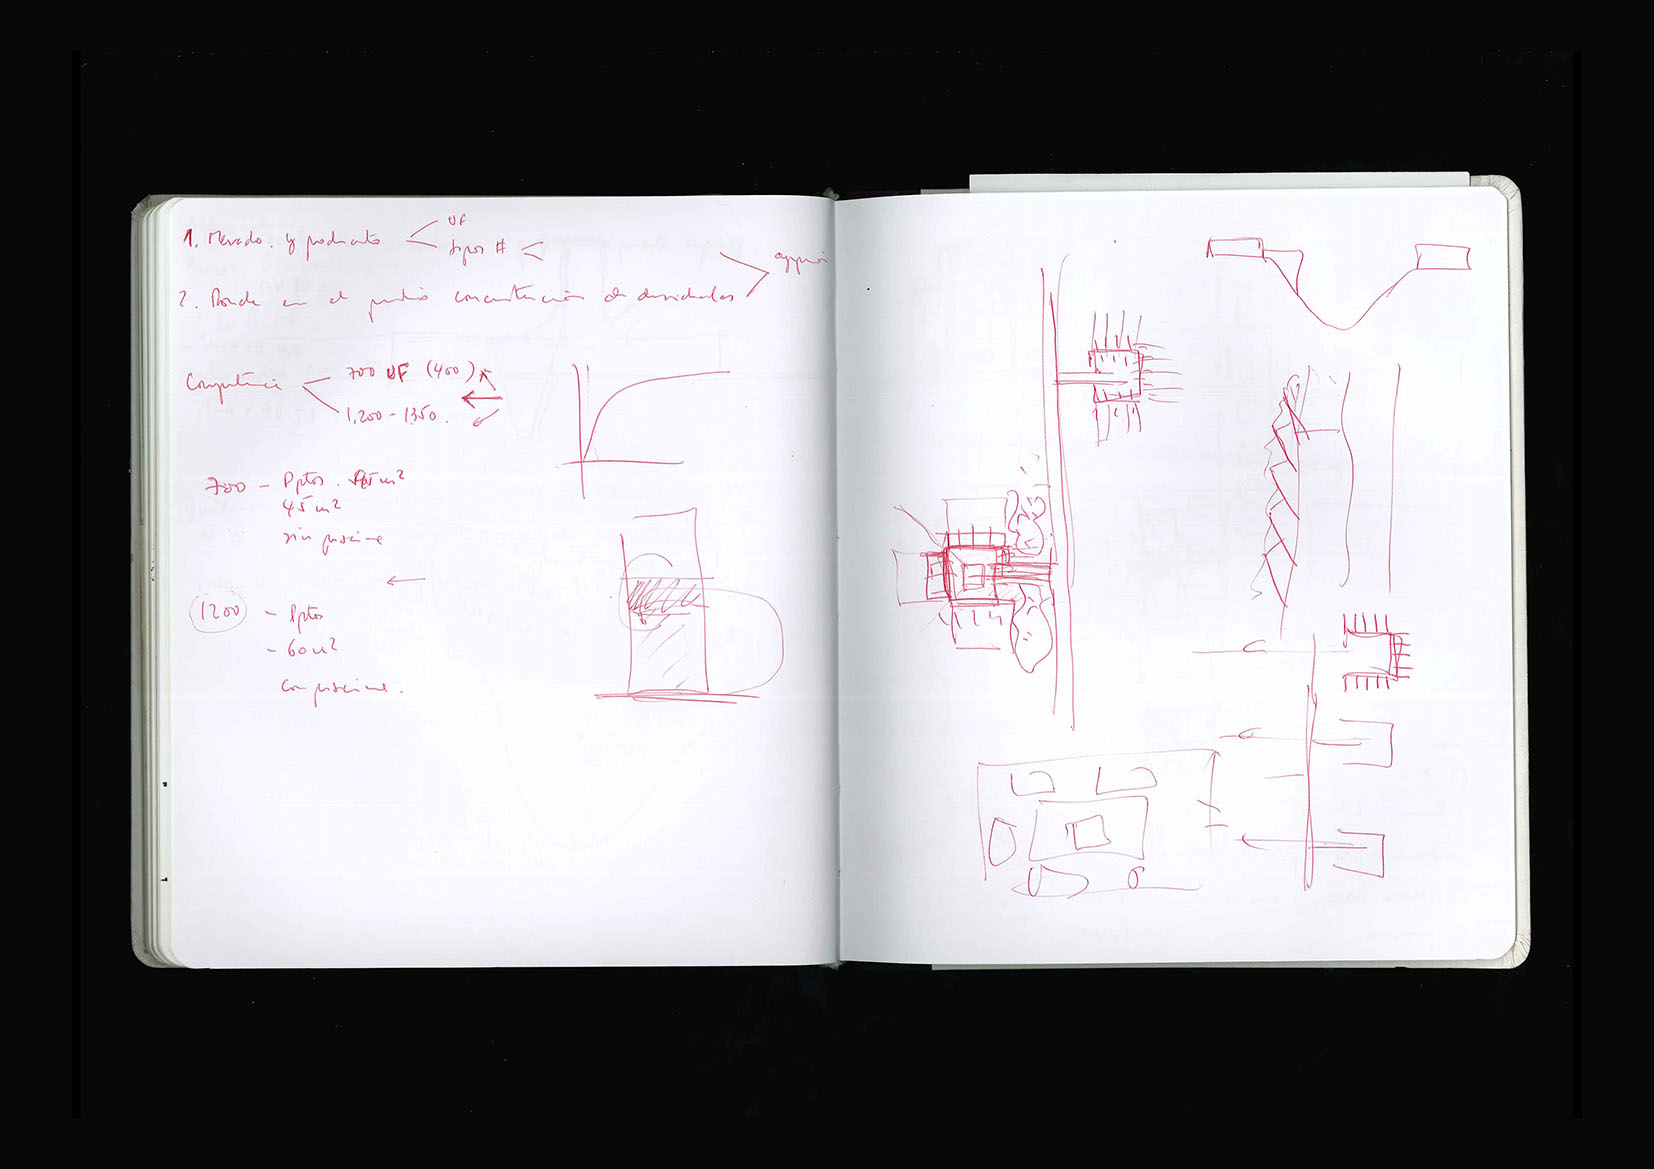 1. Mercado y producto
UF
tipos #
2. Donde en el predio concentración de densidades
Competencia
700 UF (400)
1,200 - 1350.
700 - Dptos. m²
45 m²
sin piscina
1200 - Dptos
- 60 m²
con piscina.